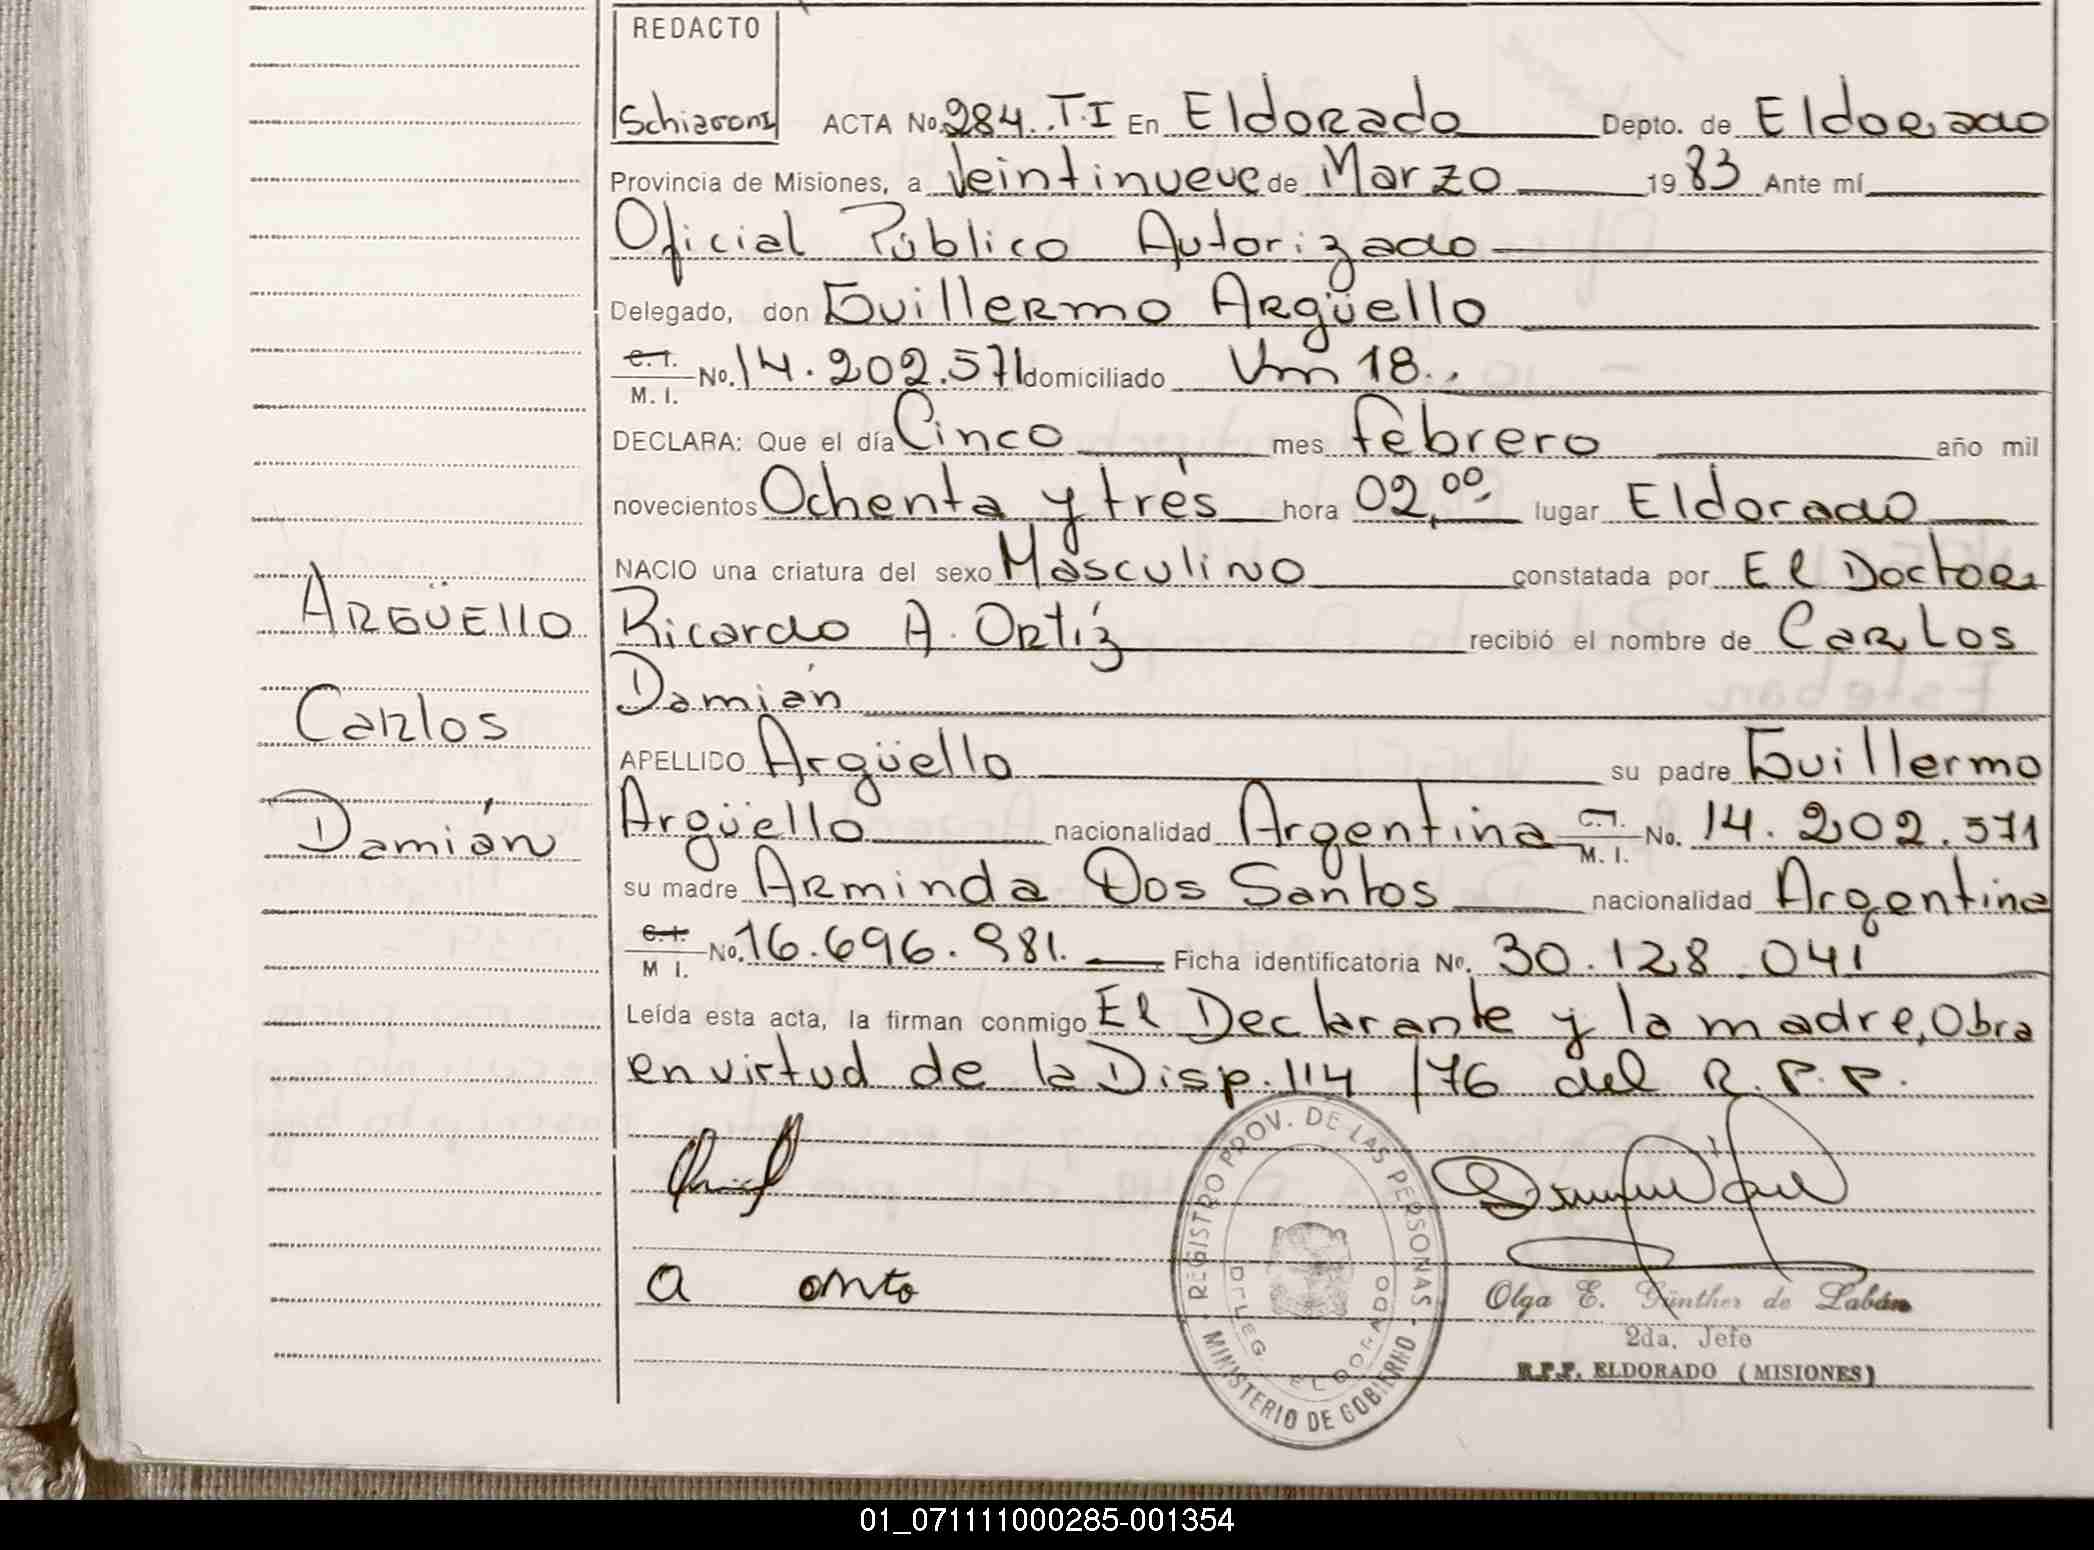 REDACTO
Schiaroni ACTA No. 284. T.I En Eldorado Depto. de Eldorado
Provincia de Misiones, a Veintinueve de Marzo 1983 Ante mí
Oficial Público Autorizado
Delegado, don Guillermo Argüello
C. I.
M. I. No. 14.202.571 domiciliado Km 18..
DECLARA: Que el día Cinco mes febrero año mil
novecientos Ochenta y trés hora 02,00 lugar Eldorado
NACIO una criatura del sexo Masculino constatada por El Doctor
ARGÜEllO Ricardo A. Ortíz recibió el nombre de Carlos
Damián
Carlos
APELLIDO Argüello su padre Guillermo
Damián Argüello nacionalidad Argentina C. I. M. I. No. 14.202.571
su madre Arminda Dos Santos nacionalidad Argentina
C. I. M I. No. 16.696.981. Ficha identificatoria No. 30.128.041
Leída esta acta, la firman conmigo El Declarante y la madre, Obra
en virtud de la Disp. 114/76 del R.P.P.
REGISTRO PROV. DE LAS PERSONAS
DELEG. ELDORADO
MINISTERIO DE GOBIERNO
Olga E. Günther de Labán
2da. Jefe
R.P.P. ELDORADO (MISIONES)
01_071111000285-001354